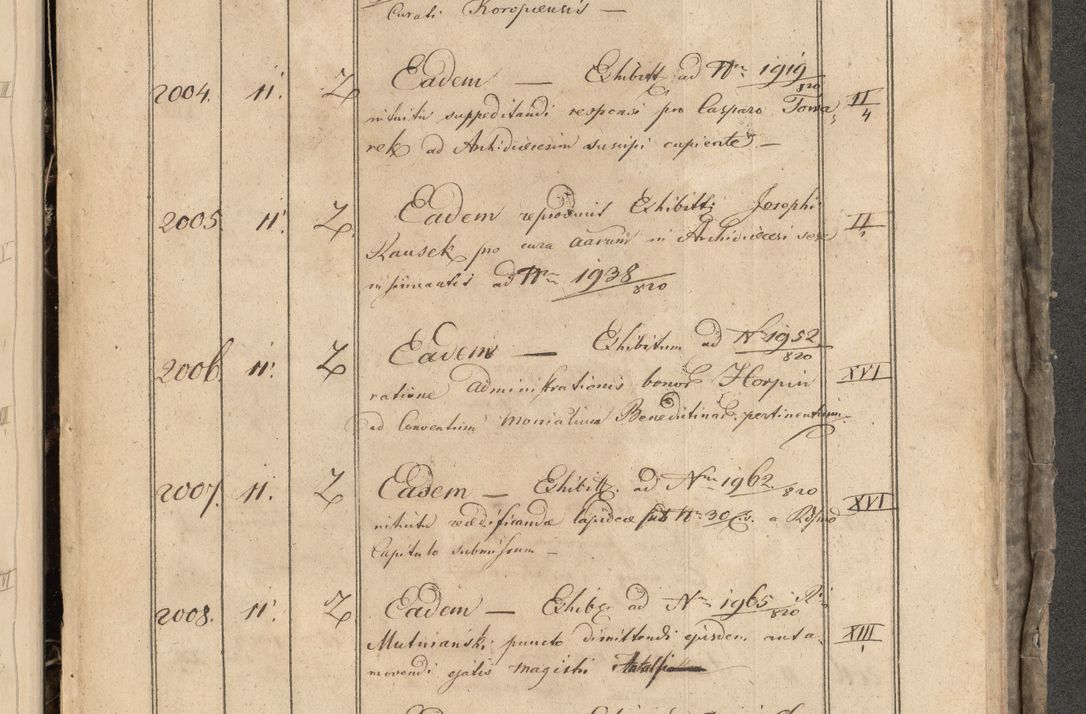 Curati Koropiensis —
2004. 11. Z Eadem — Exhibitt ad Nrm 1919/820
intuitu suppeditandi responsi pro Casparo Towa, II/4
rek ad Archidioecesim suscipi cupiente —
2005. 11. Z Eadem reproducit Exhibitt. Josephi
Kausek pro cura aarum in Archidioecesi sese II
insinuantis ad Nrm 1938/820
2006. 11. Z Eadem — Exhibitum ad N. 1952/820
ratione administrationis bonor. Horpin XVI
ad Conventum Monialium Benedictinar. pertinentium.
2007. 11. Z Eadem — Exhibitt. ad Nrm 1962/820
intuitu reaedificandae lapideae sub N. 30 a Rdsmo XVI
Capitulo submissum —
2008. 11. Z Eadem — Exhib. ad Nrm 1965/820 R.
Mutnianski puncto dimittendi ejusdem aut a, XIII
movendi ejatis Magistri